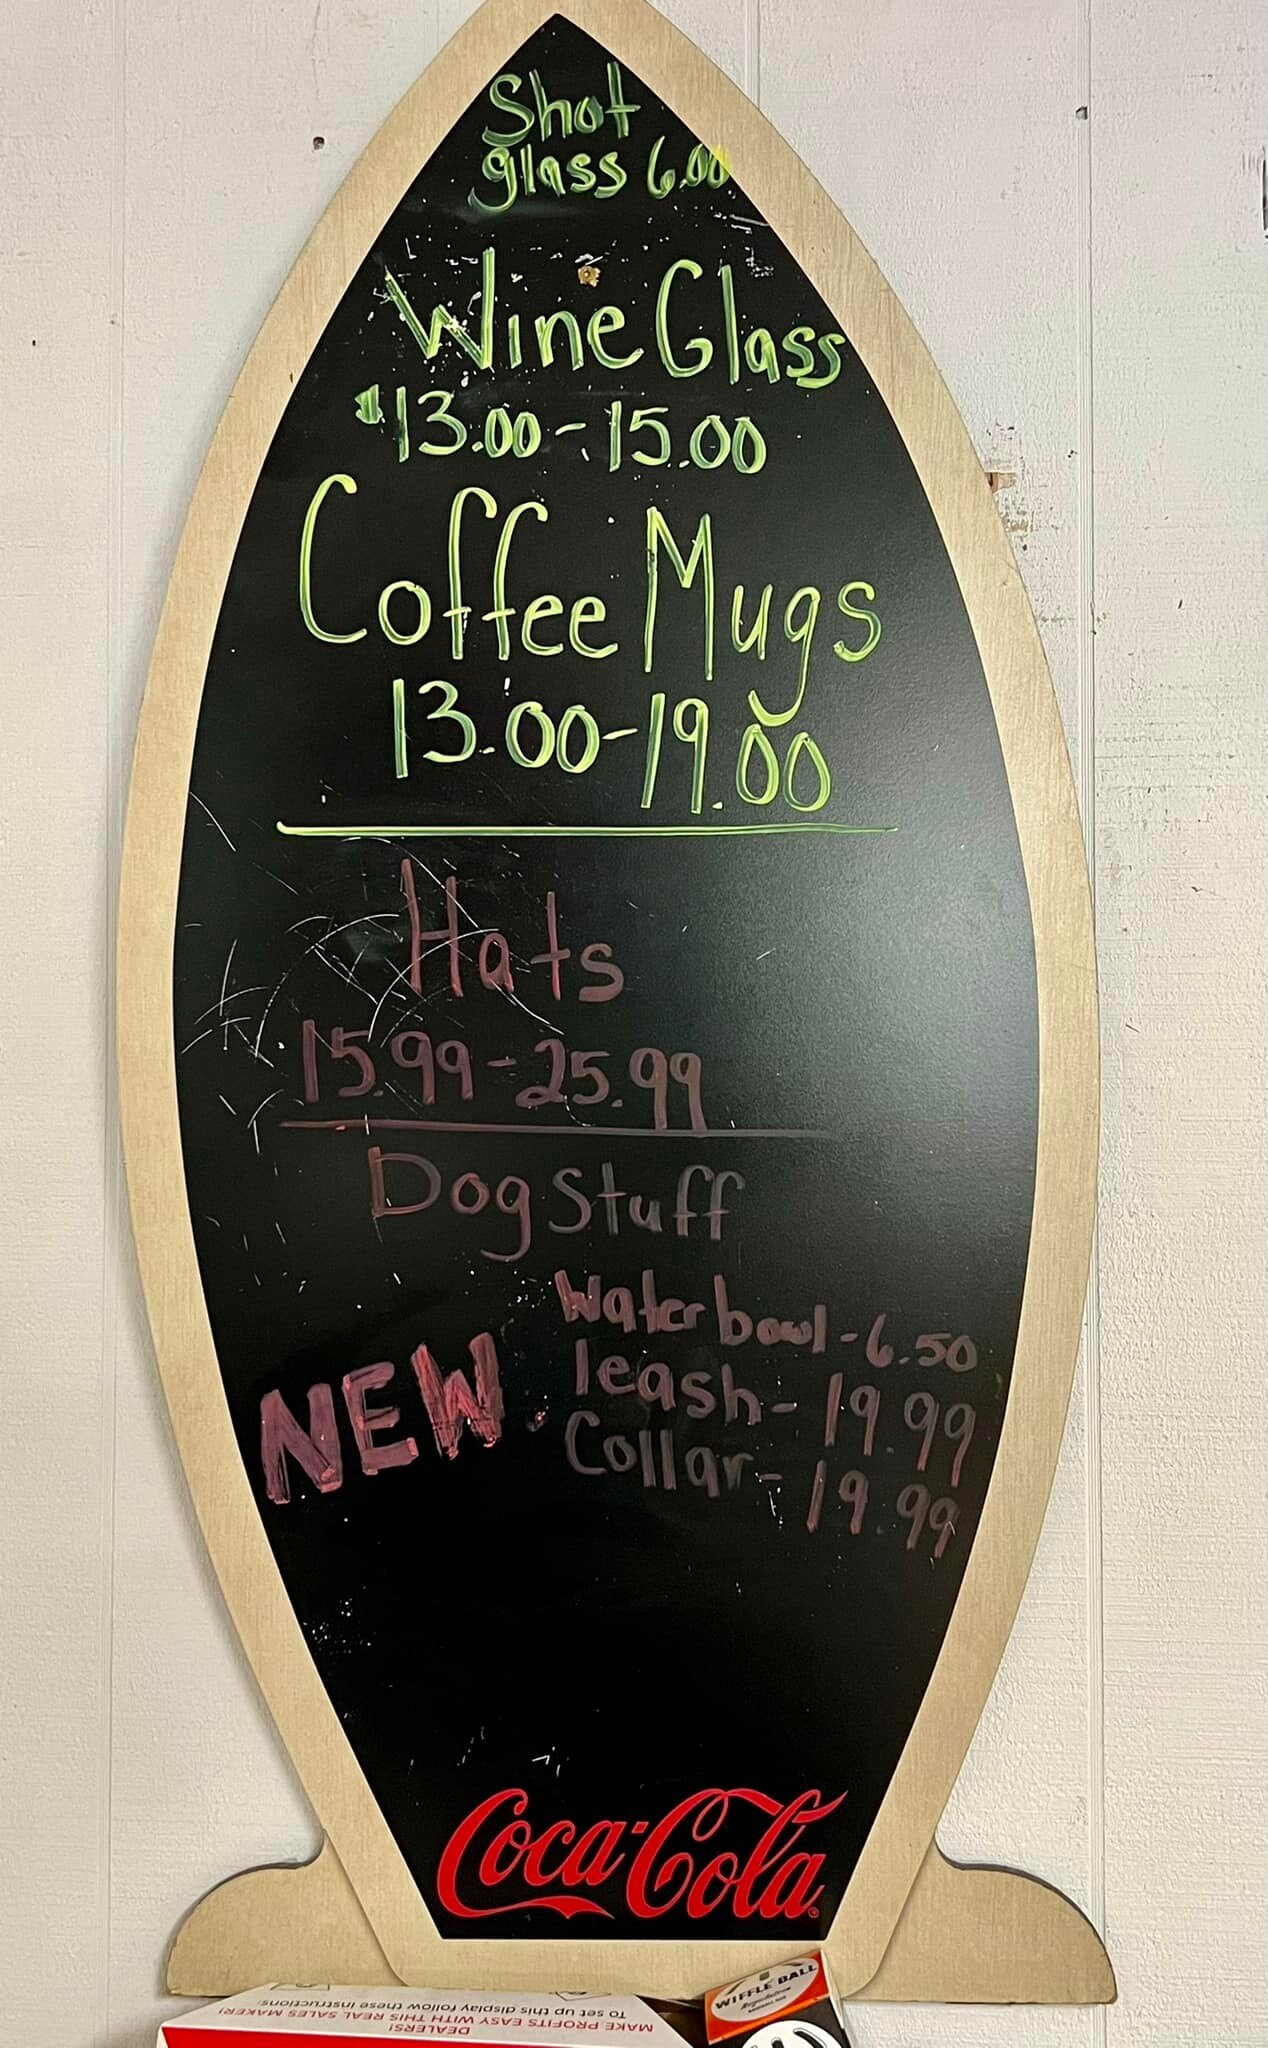 Shot
glass 6.00
Wine Glass
$13.00-15.00
Coffee Mugs
13.00-19.00
Hats
15.99-25.99
Dog Stuff
Water bowl - 6.50
NEW.
leash - 19.99
Collar - 19.99
Coca-Cola®
WIFFLE BALL
DEALERS!
MAKE PROFITS EASY WITH THIS REAL SALES MAKER!
To set up this display follow these instructions: